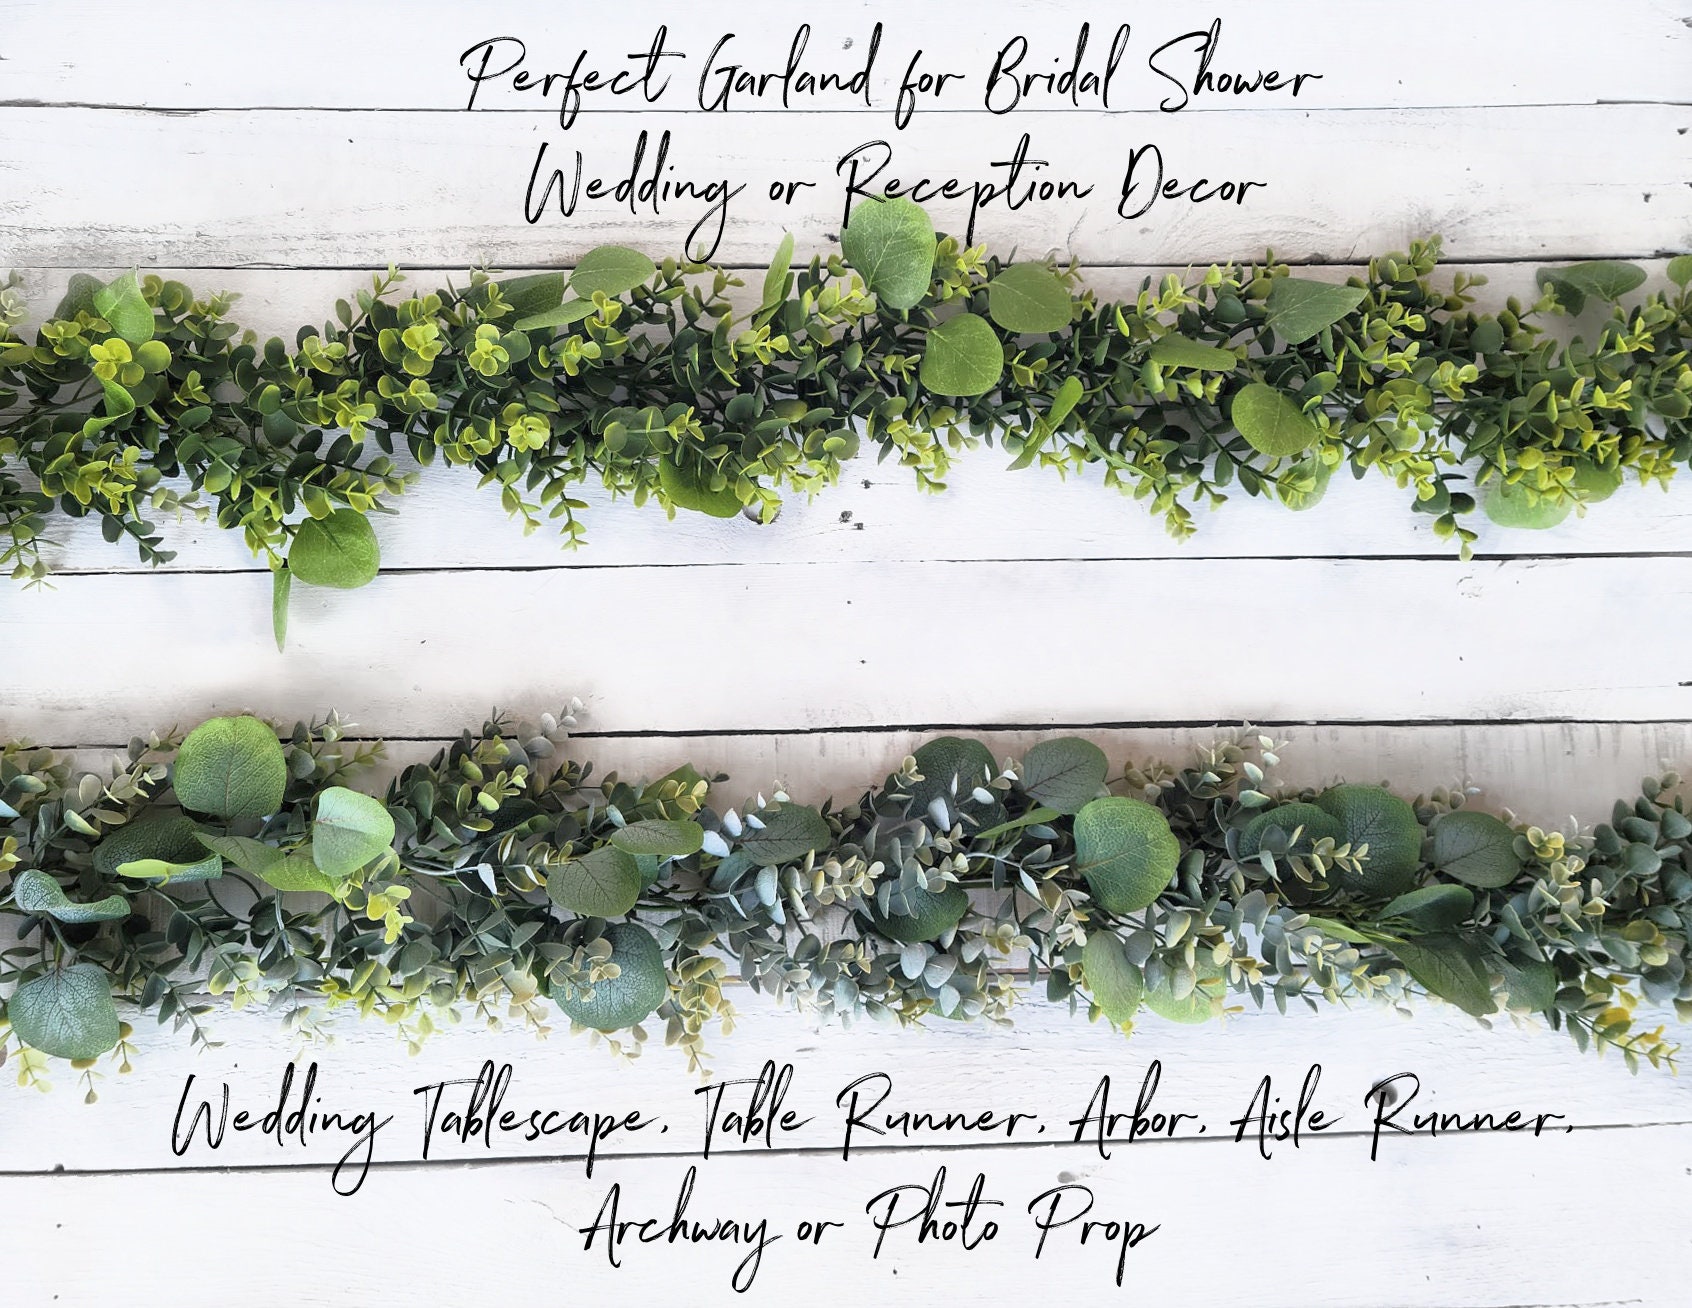 Perfect Garland for Bridal Shower
Wedding or Reception Decor
Wedding Tablescape, Table Runner, Arbor, Aisle Runner,
Archway or Photo Prop